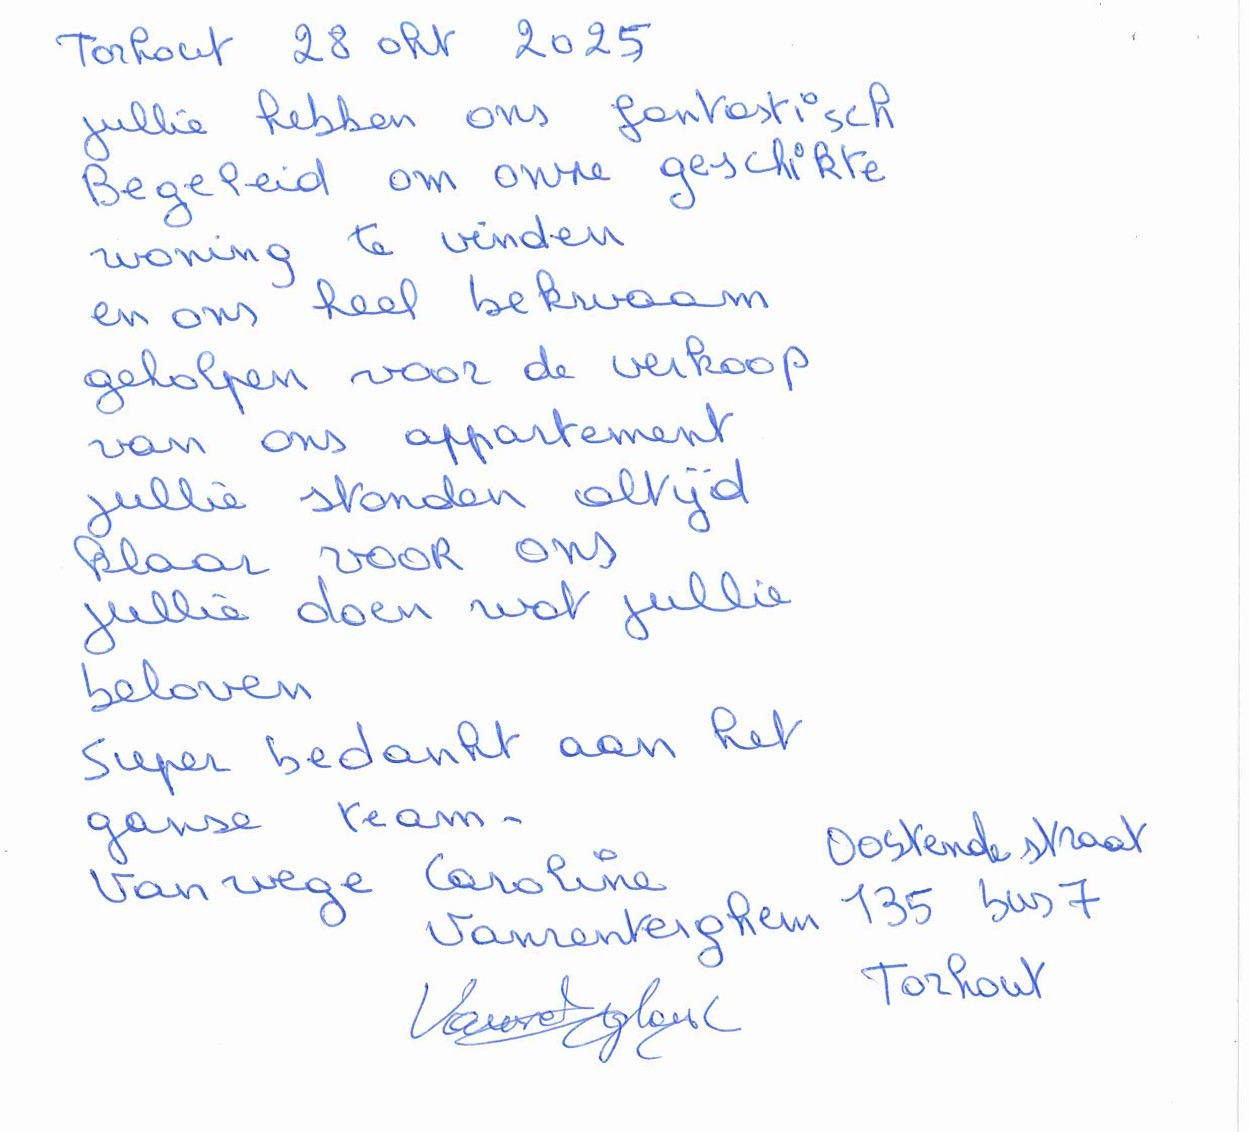 Torhout 28 okt 2025
jullie hebben ons fantastisch
Begeleid om onze geschikte
woning te vinden
en ons heel bekwaam
geholpen voor de verkoop
van ons appartement
jullie stonden altijd
klaar voor ons
jullie doen wat jullie
beloven
Super bedankt aan het
ganse team -
Vanwege Caroline
Vanrenterghem
Oostendestraat
135 bus 7
Torhout